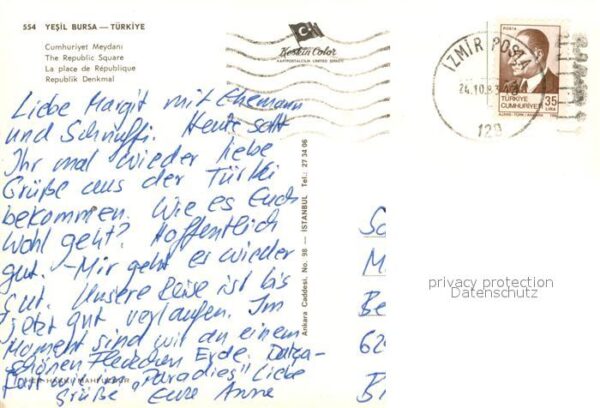 554 YEŞİL BURSA — TÜRKİYE
Cumhuriyet Meydanı
The Republic Square
La place de République
Republik Denkmal
Keskin Color
KARTPOSTALCILIK LIMITED ŞİRKETİ
İZMİR POSTA
24.10.83
129
POSTA
35
LİRA
TÜRKİYE
CUMHURİYETİ
Liebe Margit mit Ehemann
und Schnuffi. Heute sollt
Ihr mal wieder liebe
Grüße aus der Türkei
bekommen. Wie es Euch
wohl geht? Hoffentlich
gut. - Mir geht es wieder
gut. Unsere Reise ist bis
jetzt gut verlaufen. Im
Moment sind wir an einem
schönen Fleckchen Erde. Datça-
fast wie "Paradies" Liebe
Grüße Eure Anne
HER HAKKI MAHFUZDUR
Ankara Caddesi, No. 98 — İSTANBUL Tel.: 27 34 06
M
Be
62
B
privacy protection
Datenschutz